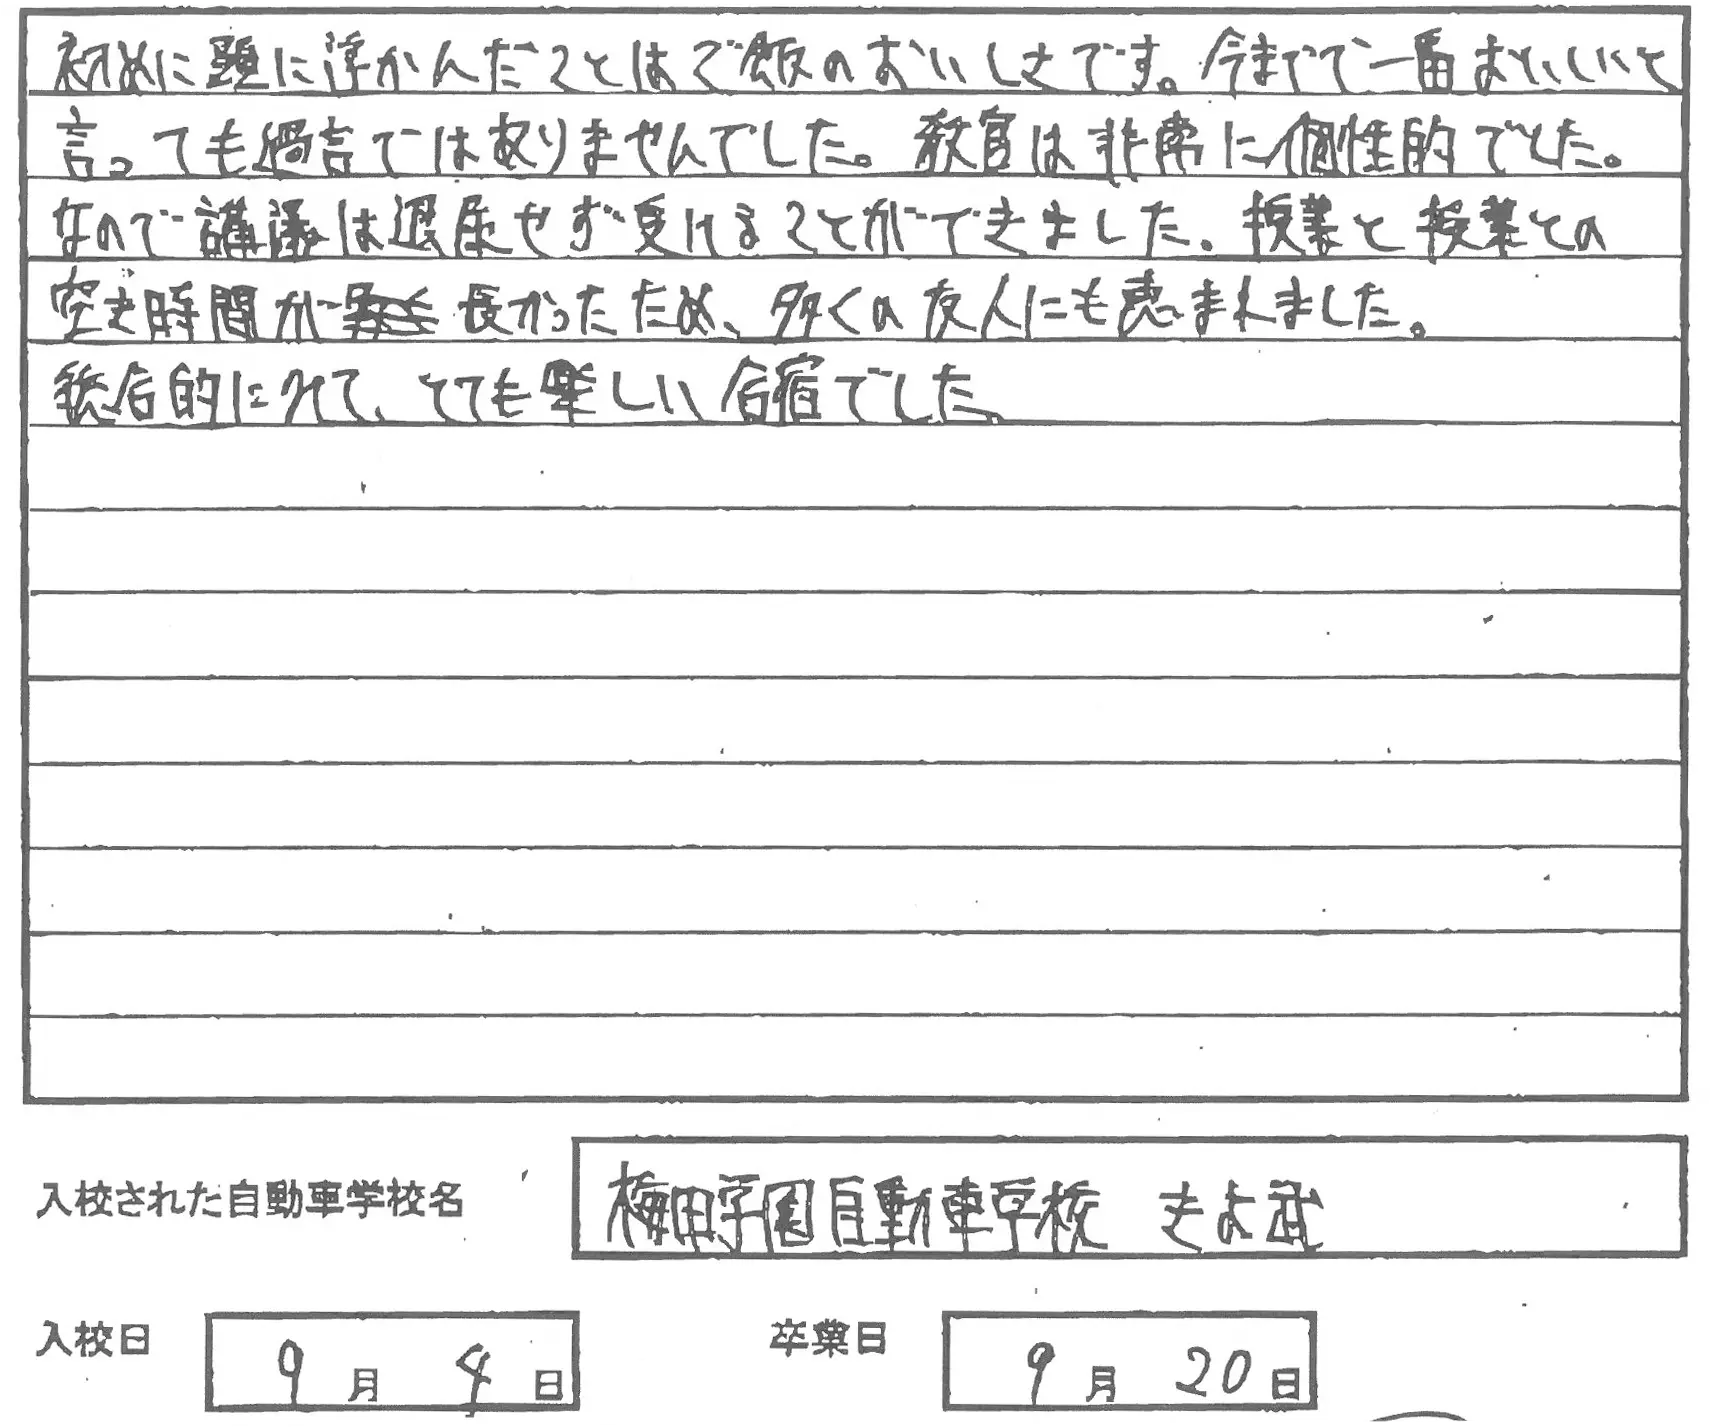 初めに頭に浮かんだことはご飯のおいしさです。今までで一番おいしいと
言っても過言ではありませんでした。教官は非常に個性的でした。
なので講議は退屈せず受けることができました。授業と授業との
空き時間が長かったため、多くの友人にも恵まれました。
総合的にみて、とても楽しい合宿でした。
入校された自動車学校名
梅田学園自動車学校 きよ武
入校日 9月 4日 卒業日 9月 20日